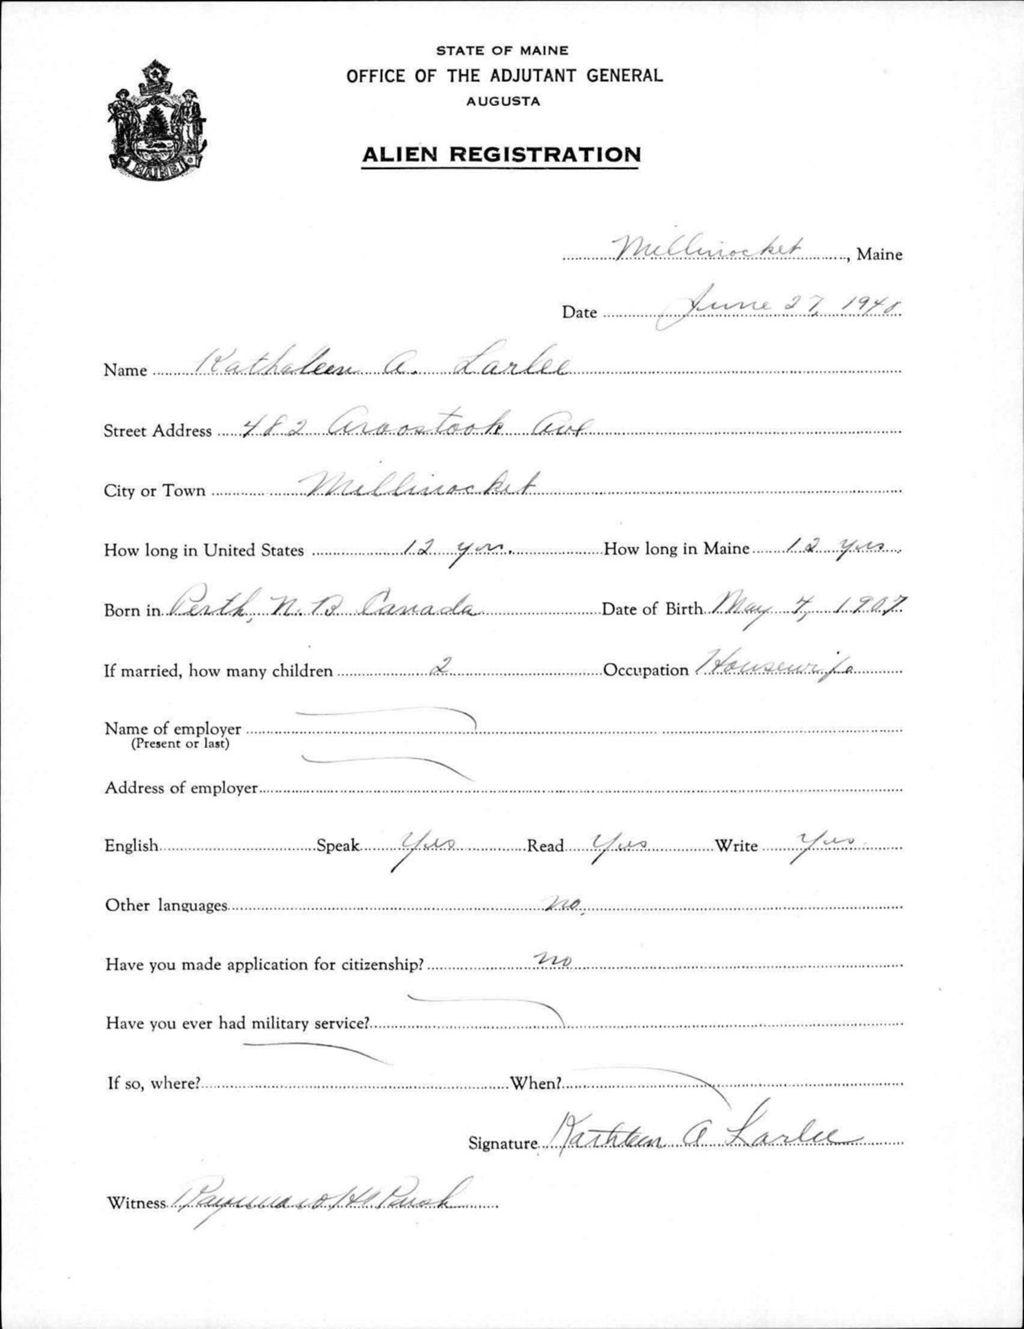 STATE OF MAINE
OFFICE OF THE ADJUTANT GENERAL
AUGUSTA
ALIEN REGISTRATION
Millinocket, Maine
Date June 27, 1940
Name Kathaleen A. Larlee
Street Address 482 Aroostook Ave
City or Town Millinocket
How long in United States 12 yrs. How long in Maine 12 yrs.
Born in Perth, N. B. Canada Date of Birth May 4, 1907
If married, how many children 2 Occupation Housewife
Name of employer
(Present or last)
Address of employer
English Speak Yes Read Yes Write Yes
Other languages no.
Have you made application for citizenship? no
Have you ever had military service?
If so, where? When?
Signature Kathleen A Larlee
Witness Raymond H
MAINE